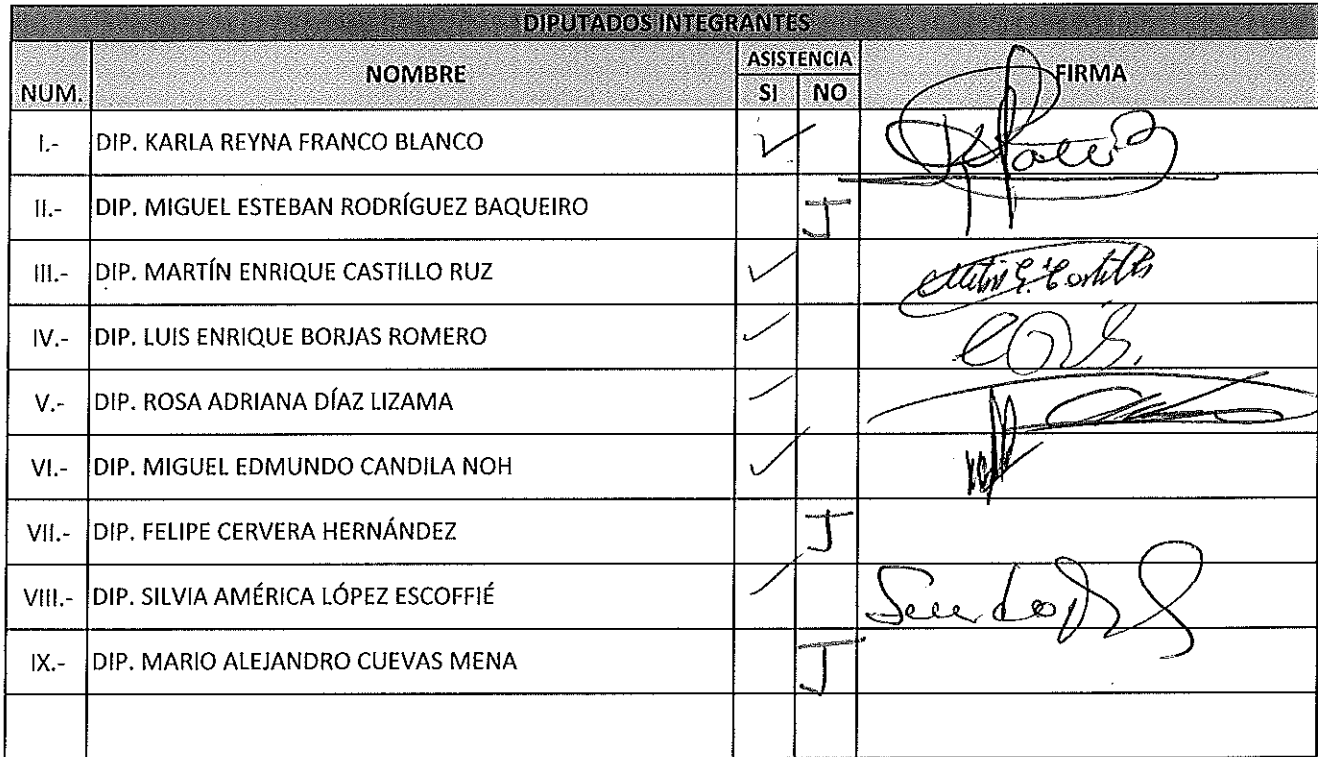 DIPUTADOS INTEGRANTES
NÚM. NOMBRE ASISTENCIA FIRMA
SI NO
I.- DIP. KARLA REYNA FRANCO BLANCO ✓
II.- DIP. MIGUEL ESTEBAN RODRÍGUEZ BAQUEIRO J
III.- DIP. MARTÍN ENRIQUE CASTILLO RUZ ✓
IV.- DIP. LUIS ENRIQUE BORJAS ROMERO ✓
V.- DIP. ROSA ADRIANA DÍAZ LIZAMA ✓
VI.- DIP. MIGUEL EDMUNDO CANDILA NOH ✓
VII.- DIP. FELIPE CERVERA HERNÁNDEZ J
VIII.- DIP. SILVIA AMÉRICA LÓPEZ ESCOFFIÉ ✓
IX.- DIP. MARIO ALEJANDRO CUEVAS MENA J